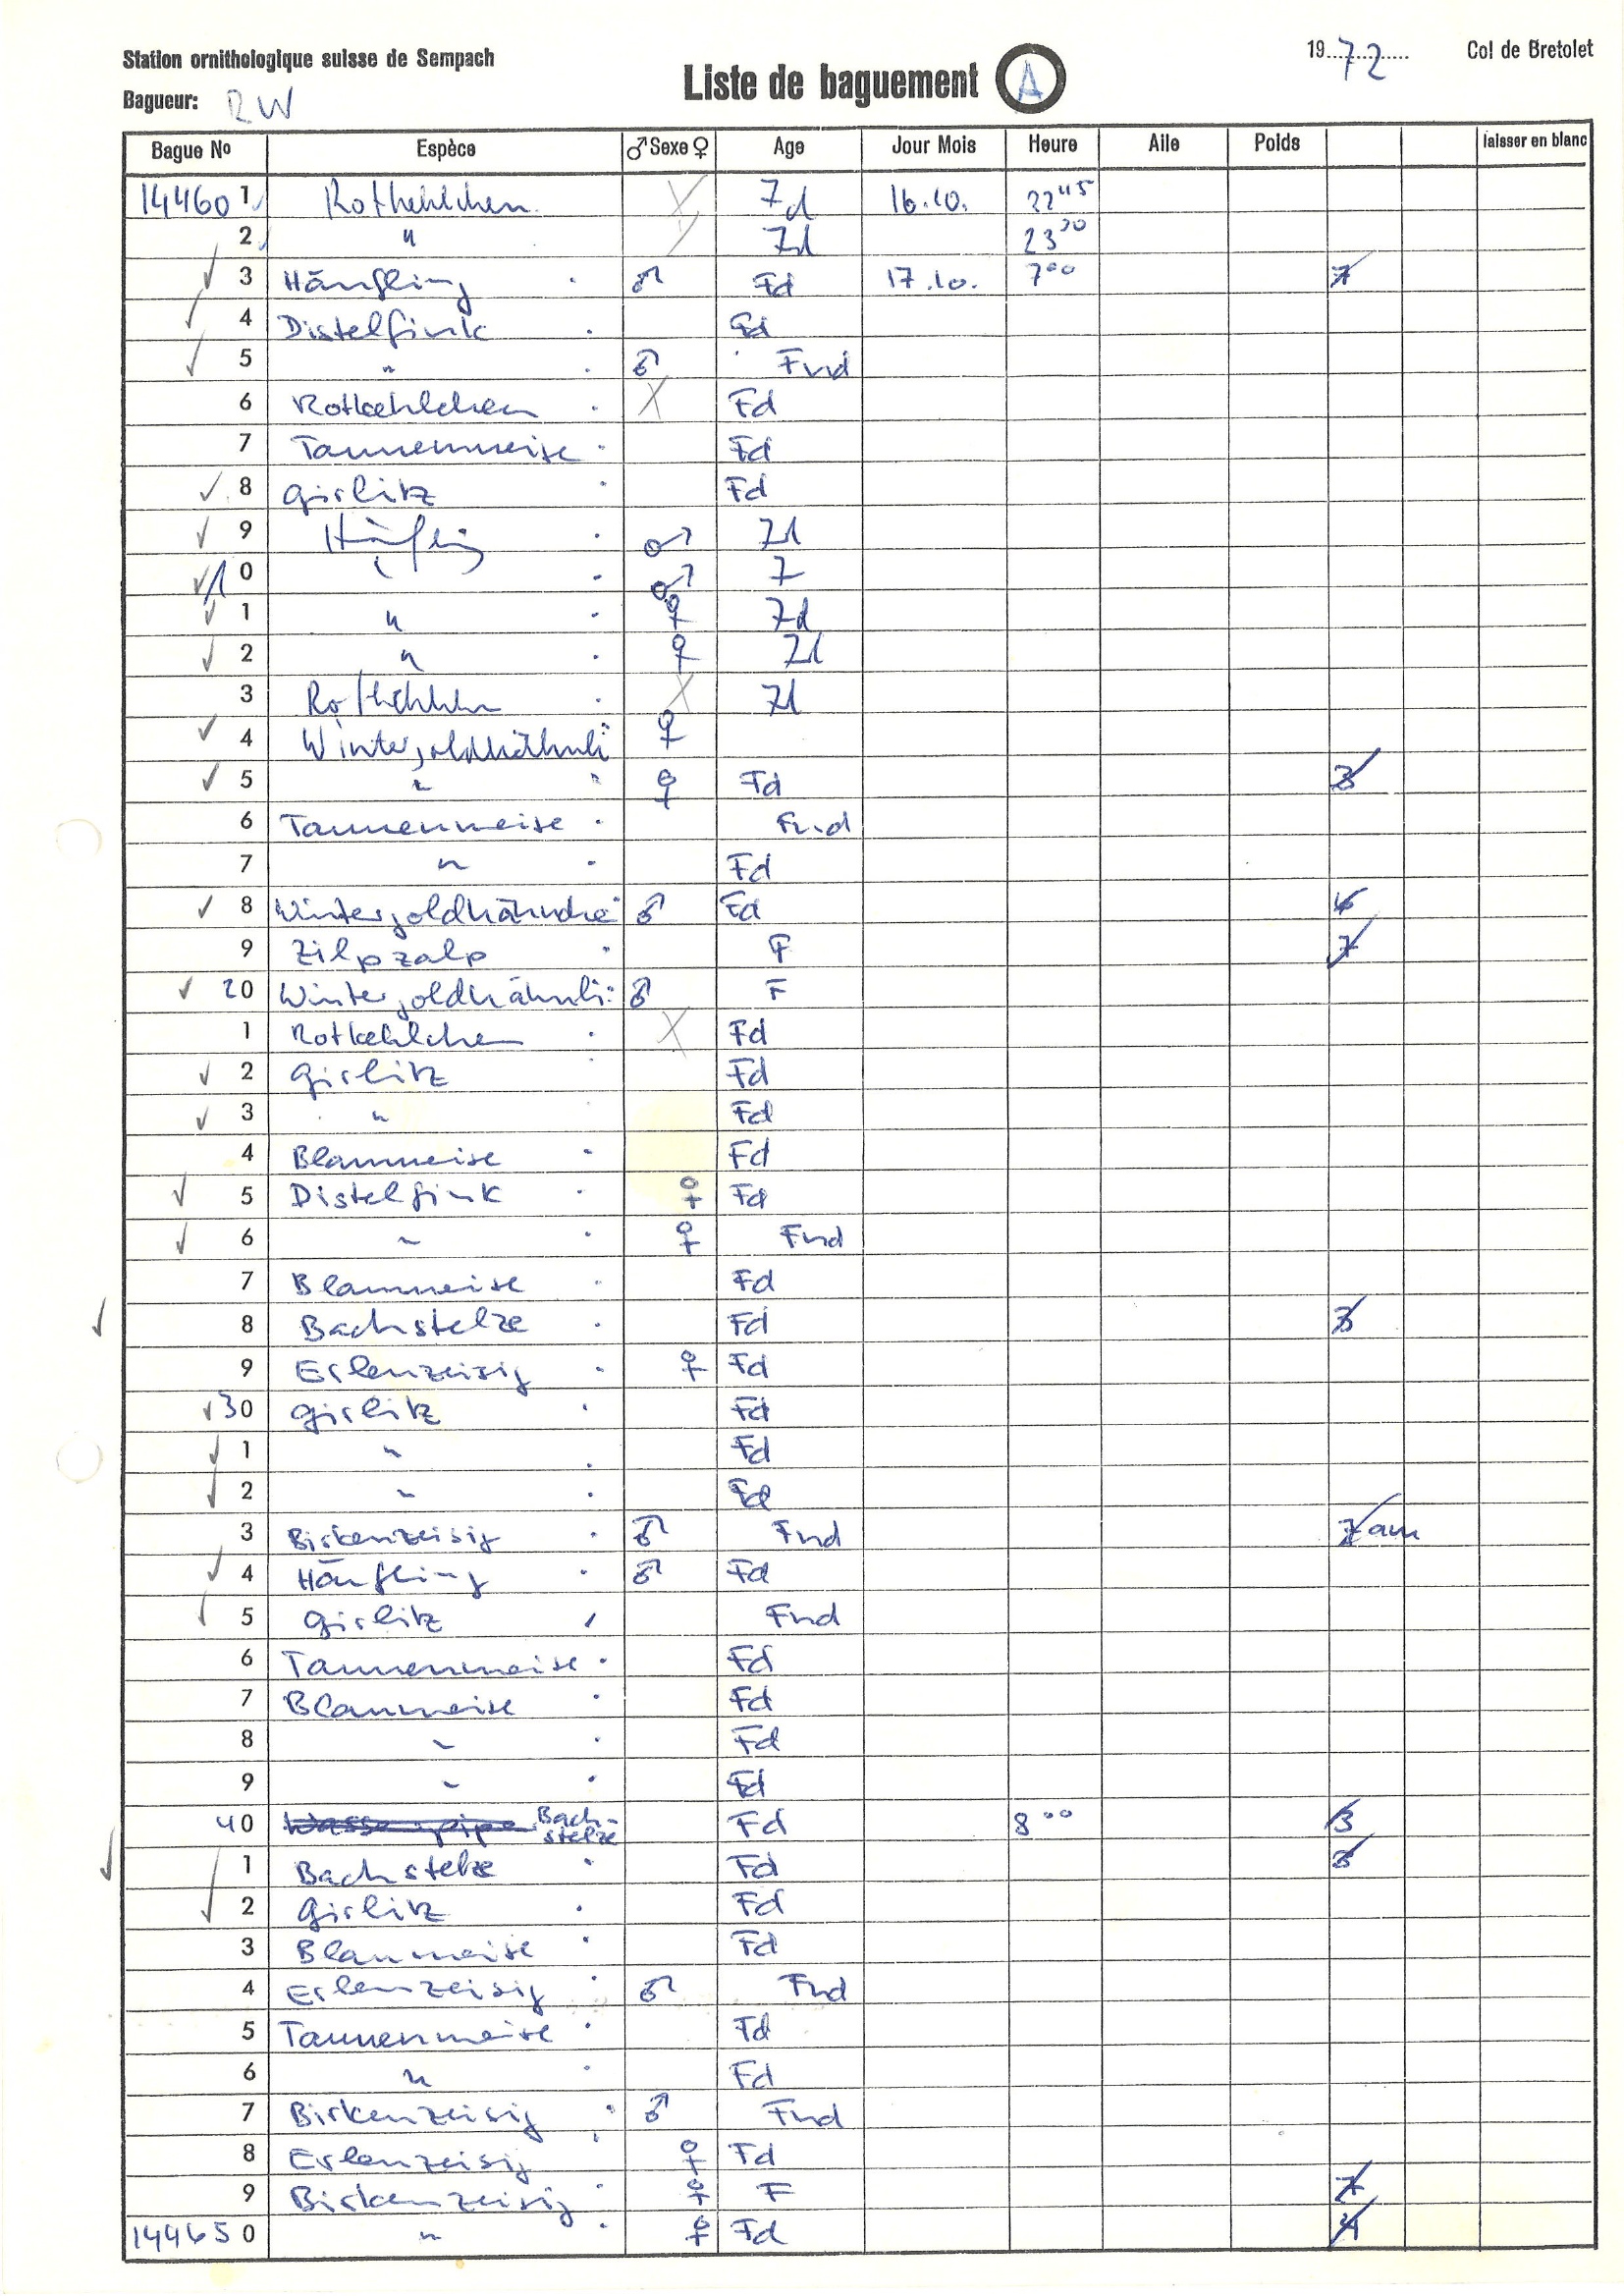 Station ornithologique suisse de Sempach
Bagueur: RW
Liste de baguement A
1972 Col de Bretolet
Bague No Espèce ♂ Sexe ♀ Age Jour Mois Heure Aile Poids laisser en blanc
144601 Rotkehlchen Zd 16.10. 22 45
2 " Zd 23
3 Hänfling ♂ Fd 17.10. 7 00 7
4 Distelfink Fd
5 " ♂ Fnd
6 Rotkehlchen Fd
7 Tannenmeise Fd
8 Girlitz Fd
9 Hänfling ♂ Zd
10 ♂ Z
1 " ♀ Zd
2 " ♀ Zd
3 Rotkehlchen Zd
4 Wintergoldhähnli ♀
5 " ♀ Fd 3
6 Tannenmeise Fnd
7 " Fd
8 Wintergoldhähnche ♂ Fd
9 Zilpzalp F 7
20 Wintergoldhähnli ♂ F
1 Rotkehlchen Fd
2 Girlitz Fd
3 " Fd
4 Blaumeise Fd
5 Distelfink ♀ Fd
6 " ♀ Fnd
7 Blaumeise Fd
8 Bachstelze Fd 3
9 Erlenzeisig ♀ Fd
30 Girlitz Fd
1 " Fd
2 " Fd
3 Birkenzeisig ♂ Fnd 7 am
4 Hänfling ♂ Fd
5 Girlitz Fnd
6 Tannenmeise Fd
7 Blaumeise Fd
8 " Fd
9 " Fd
40 Bach-stelze Fd 8 00 3
1 Bachstelze Fd 3
2 Girlitz Fd
3 Blaumeise Fd
4 Erlenzeisig ♂ Fnd
5 Tannenmeise Fd
6 " Fd
7 Birkenzeisig ♂ Fnd
8 Erlenzeisig ♀ Fd
9 Birkenzeisig ♀ F 7
144650 " ♀ Fd